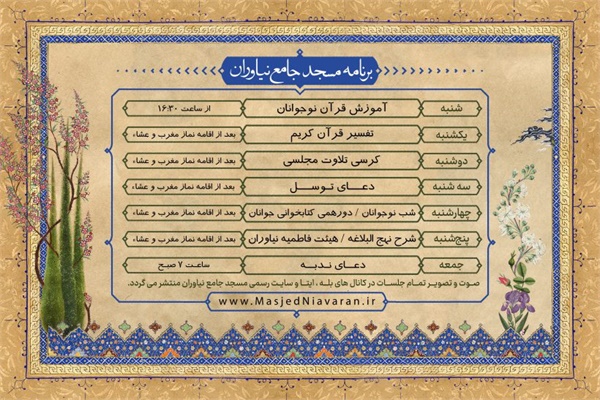 برنامه مسجد جامع نیاوران
شنبه آموزش قرآن نوجوانان از ساعت ۱۶:۳۰
یکشنبه تفسیر قرآن کریم بعد از اقامه نماز مغرب و عشاء
دوشنبه کرسی تلاوت مجلسی بعد از اقامه نماز مغرب و عشاء
سه شنبه دعـــای تـوســـل بعد از اقامه نماز مغرب و عشاء
چهارشنبه شب نوجوانان / دورهمی کتابخوانی جوانان بعد از اقامه نماز مغرب و عشاء
پنج‌شنبه شرح نهج البلاغه / هیئت فاطمیه نیاوران بعد از اقامه نماز مغرب و عشاء
جمعه دعـــای نـدبـــه ساعت ۷ صبح
صوت و تصویر تمام جلسات در کانال های بله ، ایتا و سایت رسمی مسجد جامع نیاوران منتشر می گردد.
www.MasjedNiavaran.ir